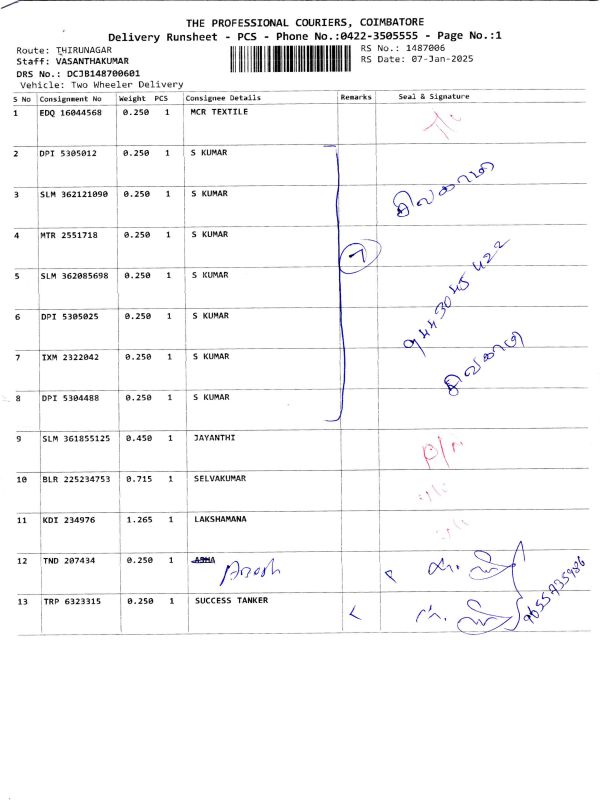 THE PROFESSIONAL COURIERS, COIMBATORE
Delivery Runsheet - PCS - Phone No.:0422-3505555 - Page No.:1
Route: THIRUNAGAR
RS No.: 1487006
Staff: VASANTHAKUMAR
RS Date: 07-Jan-2025
DRS No.: DCJB148700601
Vehicle: Two Wheeler Delivery
S No Consignment No Weight PCS Consignee Details Remarks Seal & Signature
1 EDQ 16044568 0.250 1 MCR TEXTILE
2 DPI 5305012 0.250 1 S KUMAR
3 SLM 362121090 0.250 1 S KUMAR
4 MTR 2551718 0.250 1 S KUMAR
7
5 SLM 362085698 0.250 1 S KUMAR
6 DPI 5305025 0.250 1 S KUMAR
9443045422
7 IXM 2322042 0.250 1 S KUMAR
8 DPI 5304488 0.250 1 S KUMAR
9 SLM 361855125 0.450 1 JAYANTHI
10 BLR 225234753 0.715 1 SELVAKUMAR
11 KDI 234976 1.265 1 LAKSHAMANA
12 TND 207434 0.250 1 ASHA
13 TRP 6323315 0.250 1 SUCCESS TANKER